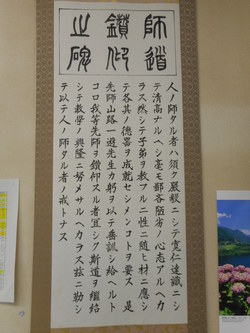 師道
鑽仰
之碑
人ノ師タル者ハ須ク嚴毅ニシテ寛仁達識ニシ
テ清高ナルヘシ毫モ鄙吝陋劣ノ心志アルヘカ
ラス然シテ子弟ヲ教フルニ性ニ随ヒ材ニ應シ
テ各其ノ德器ヲ成就セシメンコトヲ要ス是
先師山路一遊先生カ躬ヲ以テ垂訓シ給ヘルト
コロ我等先師ヲ鑽仰スル者宜シク斯道ヲ繼紹
シテ教學ノ興隆ニ努メサルヘカラス茲ニ勒シ
テ以テ人ノ師タル者ノ戒トナス